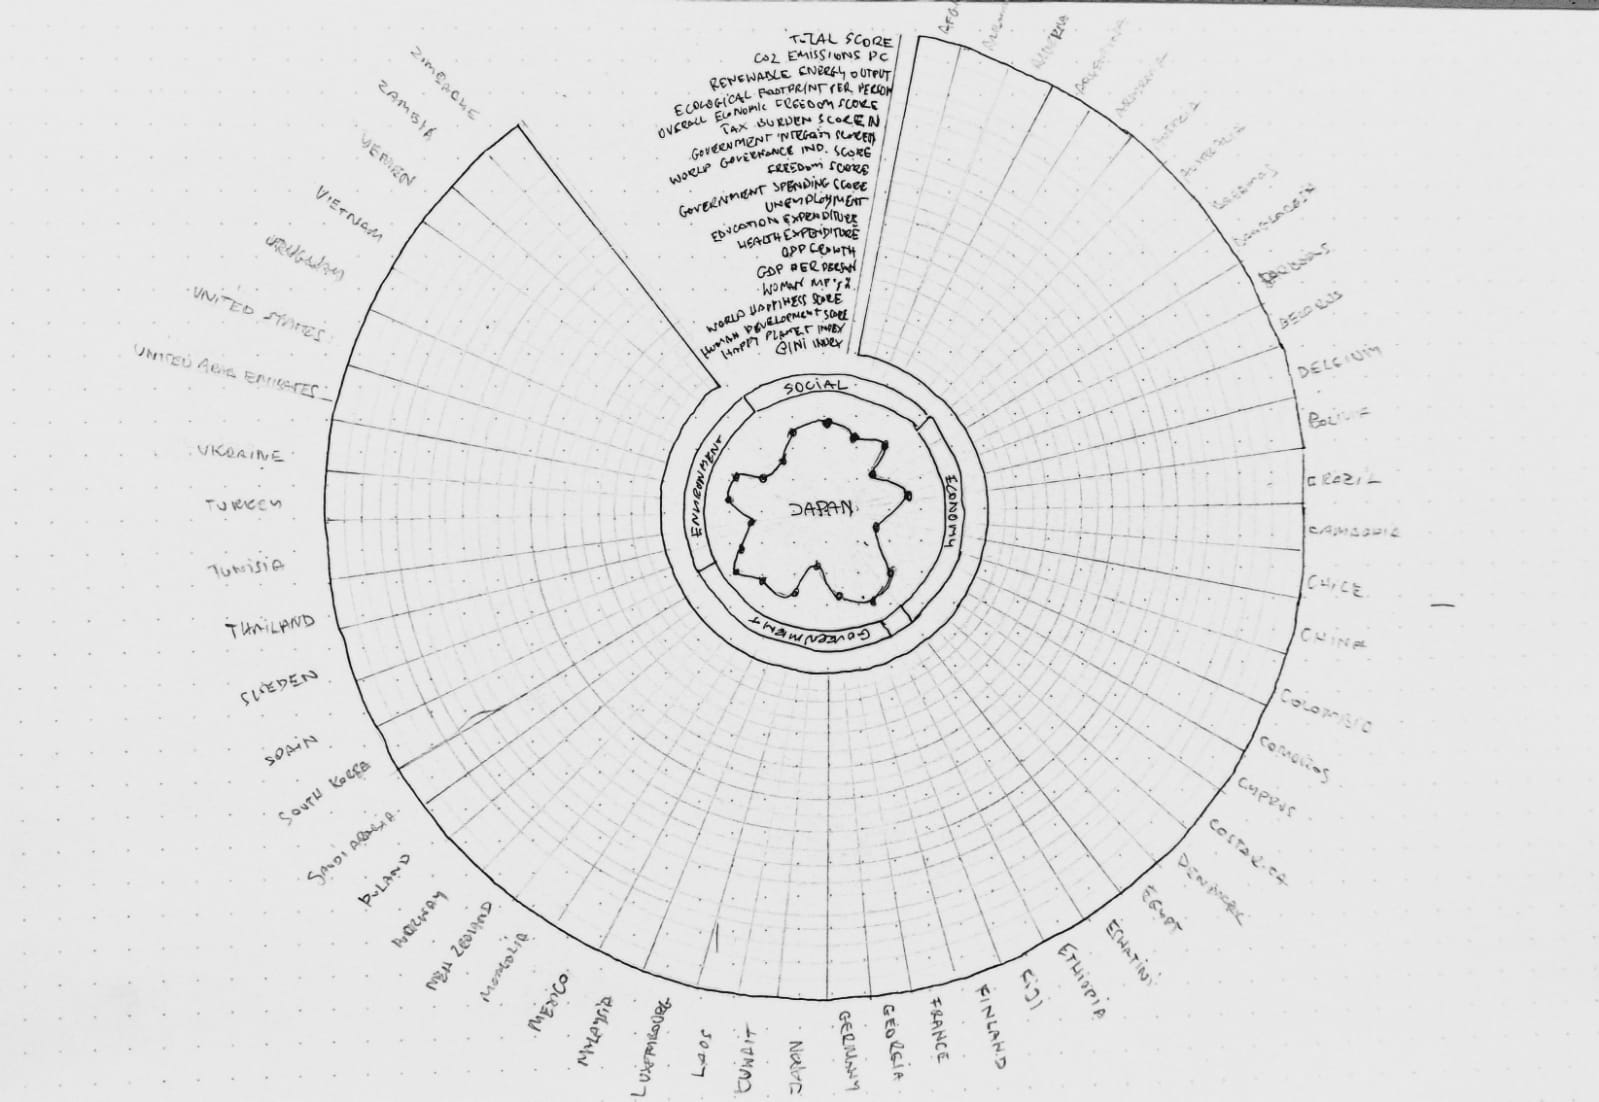 TOTAL SCORE
CO2 EMISSIONS PC
RENEWABLE ENERGY OUTPUT
ECOLOGICAL FOOTPRINT PER PERSON
OVERALL ECONOMIC FREEDOM SCORE
TAX BURDEN SCORE
GOVERNMENT INTEGRITY SCORE
WORLD GOVERNANCE IND. SCORE
FREEDOM SCORE
GOVERNMENT SPENDING SCORE
UNEMPLOYMENT
EDUCATION EXPENDITURE
HEALTH EXPENDITURE
GDP GROWTH
GDP PER PERSON
WOMAN MP'S %
WORLD HAPPINESS SCORE
HUMAN DEVELOPMENT SCORE
HAPPY PLANET INDEX
GINI INDEX
ALGERIA
ARGENTINA
ARMENIA
AUSTRALIA
AUSTRIA
BAHAMAS
BANGLADESH
BARBADOS
BELARUS
BELGIUM
BOLIVIA
BRAZIL
CAMBODIA
CHILE
CHINA
COLOMBIA
COMOROS
CYPRUS
COSTARICA
DENMARK
EGYPT
ESWATINI
ETHIOPIA
FIJI
FINLAND
FRANCE
GEORGIA
GERMANY
KUWAIT
LAOS
LUXEMBOURG
MALAYSIA
MEXICO
MONGOLIA
NEW ZEALAND
NORWAY
POLAND
SAUDI ARABIA
SOUTH KOREA
SPAIN
SWEDEN
THAILAND
TUNISIA
TURKEY
UKRAINE
UNITED ARAB EMIRATES
UNITED STATES
URUGUAY
VIETNAM
YEMEN
ZAMBIA
ZIMBABWE
SOCIAL
ECONOMY
GOVERNMENT
ENVIRONMENT
JAPAN